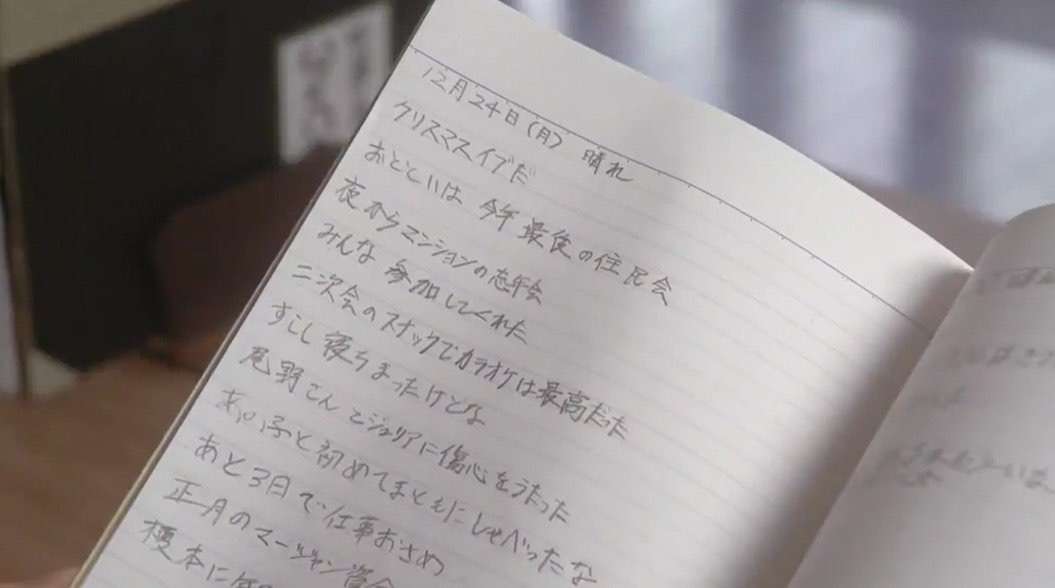 12月24日(月) 晴れ
クリスマスイブだ
おとといは 今年最後の住民会
夜からマンションの忘年会
みんな 参加してくれた
二次会のスナックでカラオケは最高だった
すこし寝ちまったけどな
尾野さんとジュリアに傷心をうたった
あいつ子と初めてまともにしゃべったな
あと3日で仕事おさめ
正月のマージャン資金
榎本に